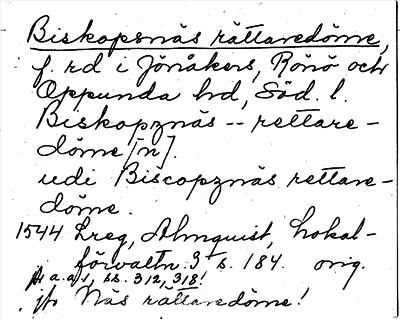 Biskopsnäs rättaredöme,
f. rd i Jönåkers, Rönö och
Oppunda hd, Söd. l.
Biskopznäs -- rettare-
döme [n].
udi Biscopznäs rettare-
döme.
1544 Lreg, Almquist, Lokal-
förvaltn. 3 s. 184. orig.
jfr a.a. 1, ss. 312, 318!
jfr Näs rättaredöme!